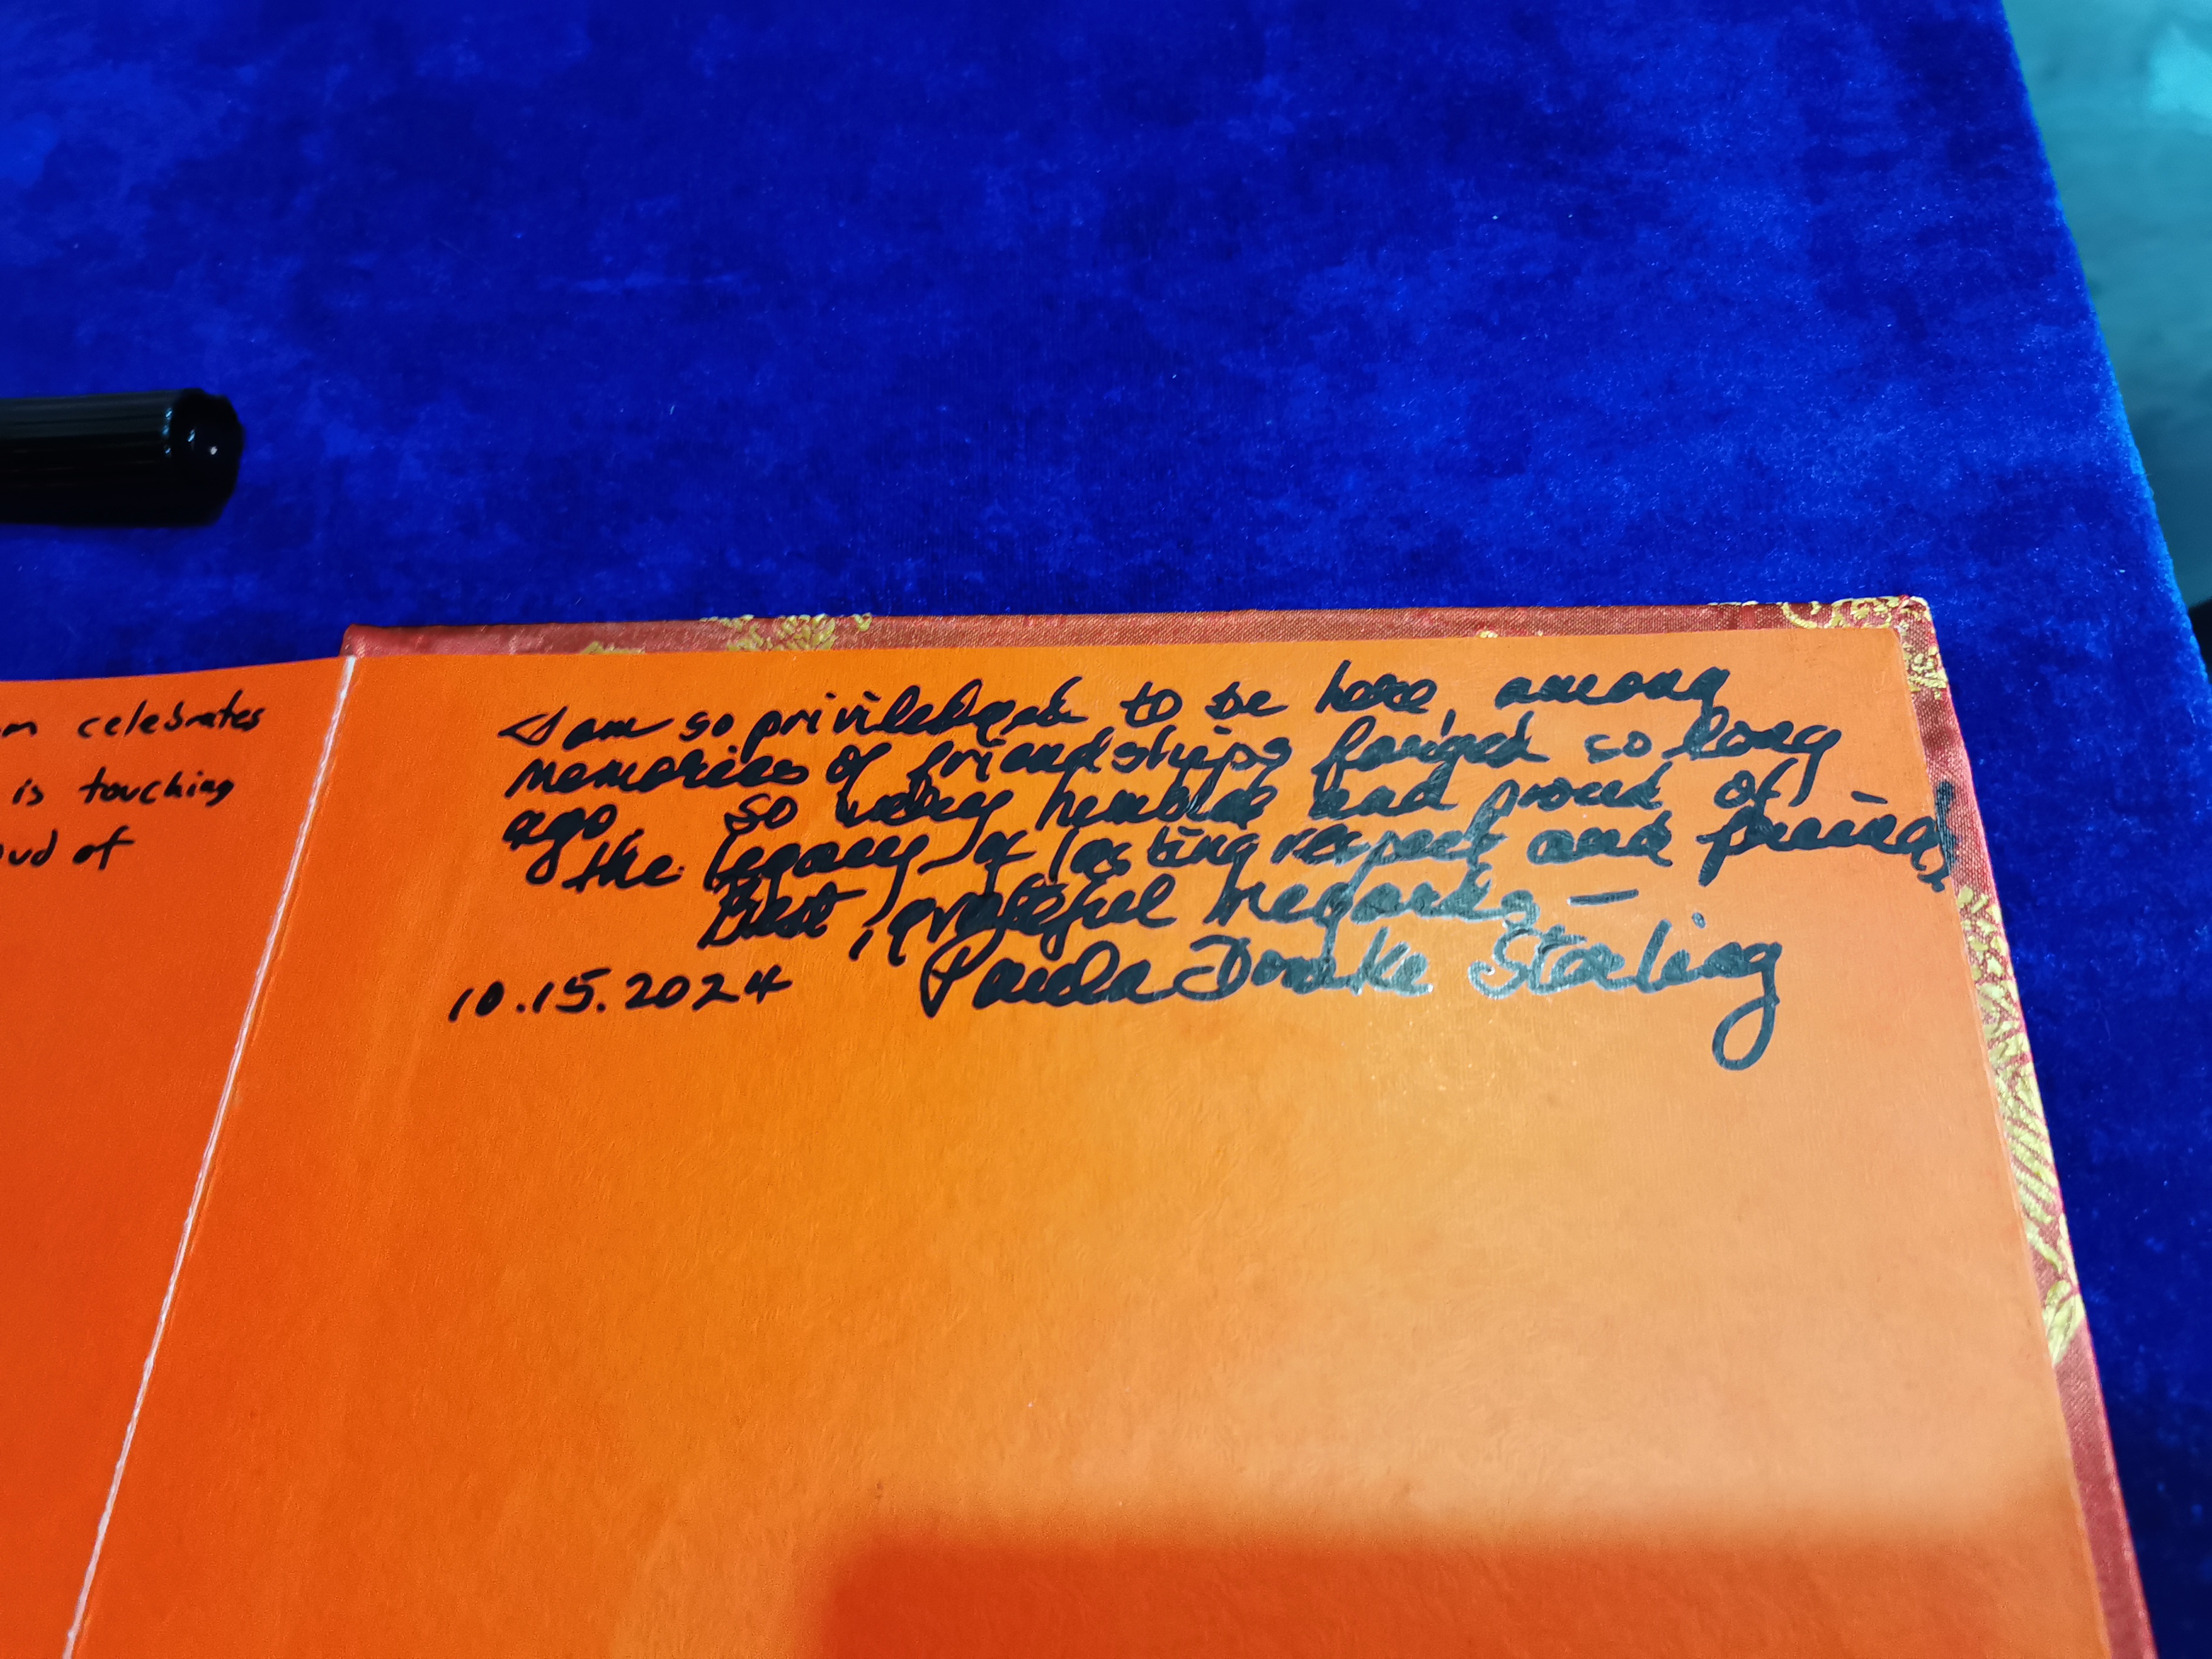 n celebrates
is touching
oud of
I am so priviledged to be here, among
memories of friendships forged so long
ago. So very humble and proud of
the legacy of lasting respect and friends,
Best, grateful regards, —
Paula Drake Starling
10.15.2024